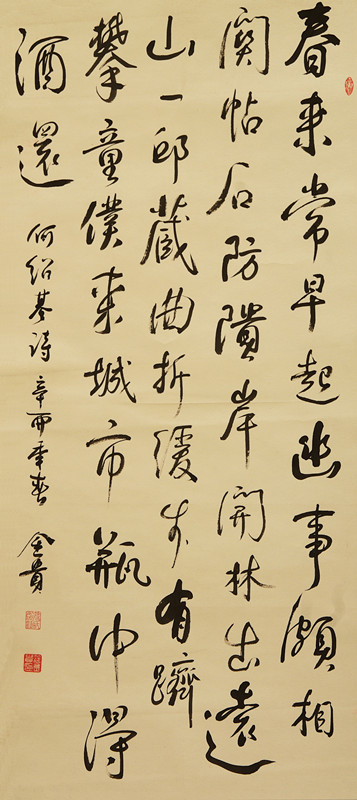 春来常早起幽事頗相
関帖石防隤岸開林出遠
山一邱藏曲折緩步有躋
攀童僕来城市瓶中得
酒還
何紹基詩 辛 春 金貴